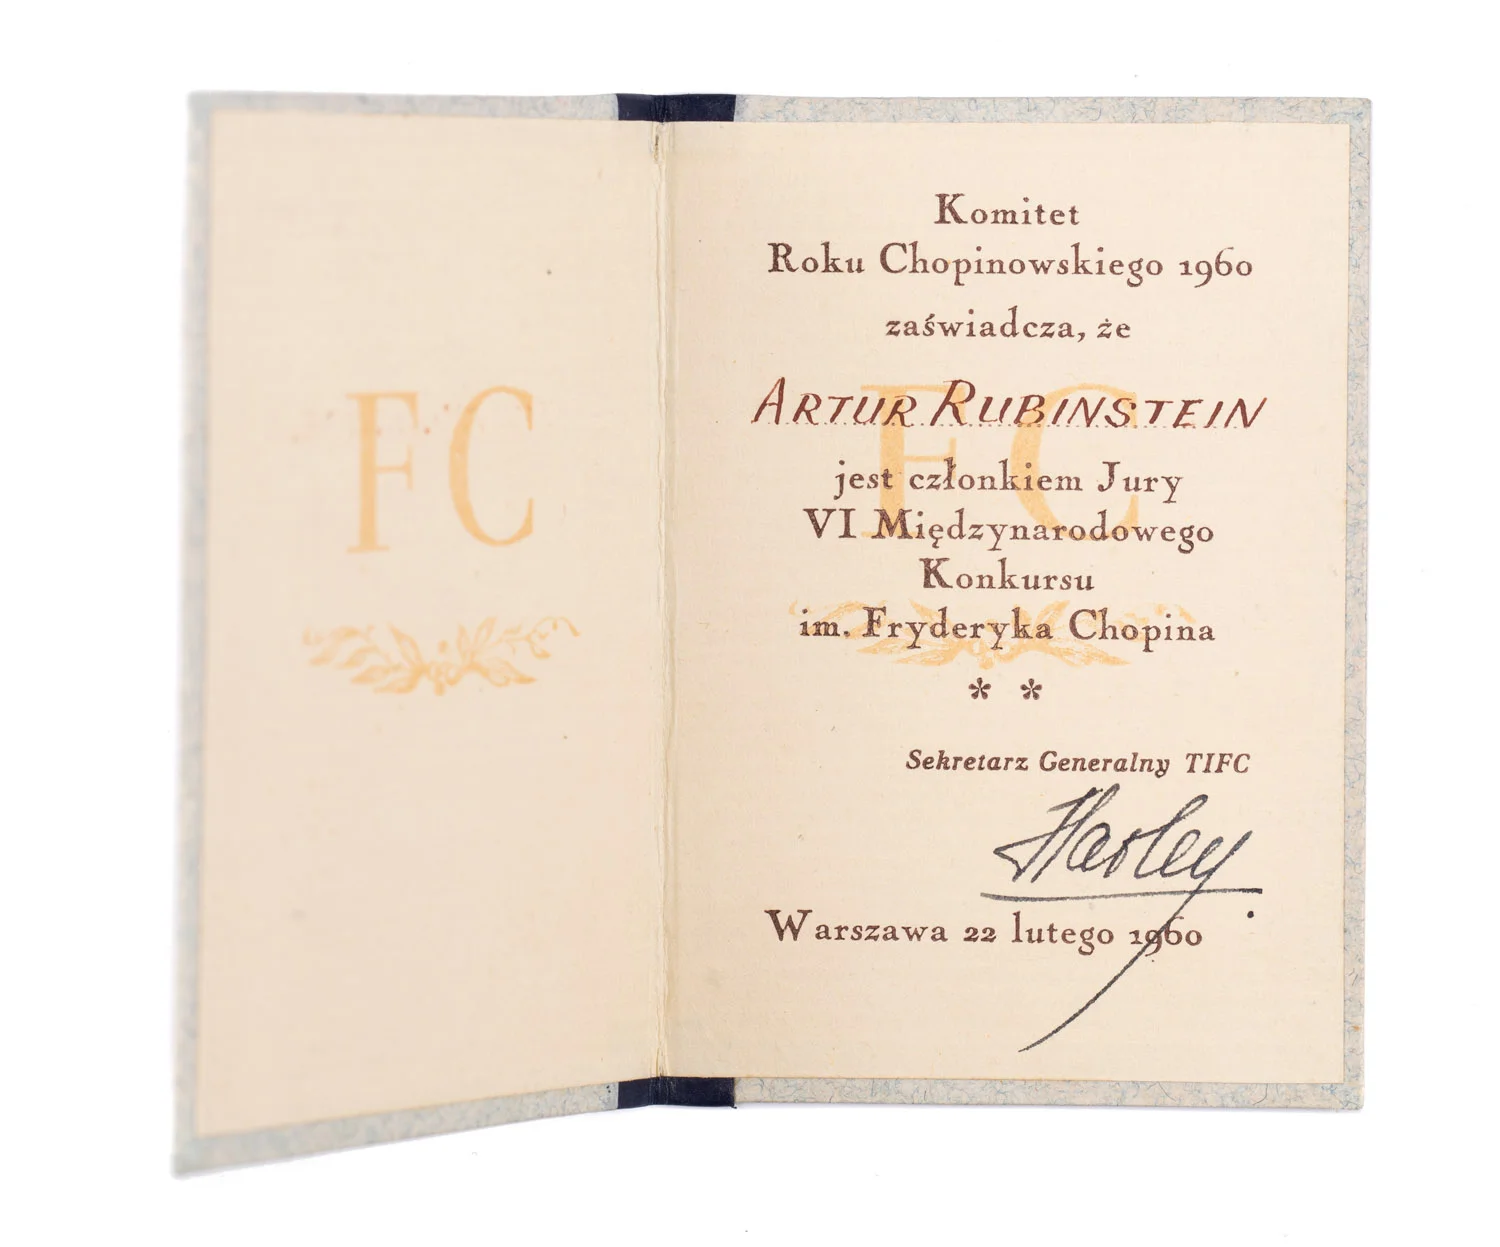 FC
Komitet
Roku Chopinowskiego 1960
zaświadcza, że
ARTUR RUBINSTEIN
FC
jest członkiem Jury
VI Międzynarodowego
Konkursu
im. Fryderyka Chopina
* *
Sekretarz Generalny TIFC
Warszawa 22 lutego 1960